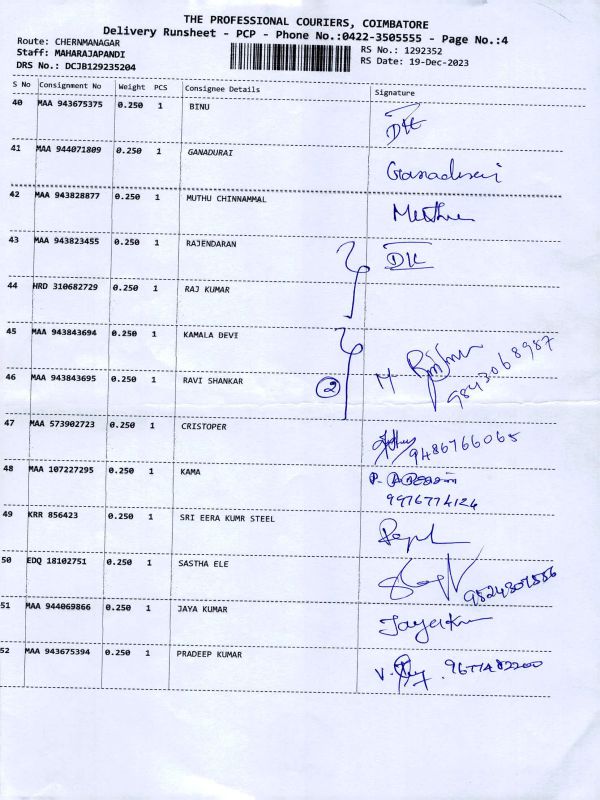 THE PROFESSIONAL COURIERS, COIMBATORE
Delivery Runsheet - PCP - Phone No.:0422-3505555 - Page No.:4
Route: CHERNMANAGAR
Staff: MAHARAJAPANDI
DRS No.: DCJB129235204
RS No.: 1292352
RS Date: 19-Dec-2023
S No Consignment No Weight PCS Consignee Details Signature
40 MAA 943675375 0.250 1 BINU DK
41 MAA 944071809 0.250 1 GANADURAI Ganadurai
42 MAA 943828877 0.250 1 MUTHU CHINNAMMAL Muthu
43 MAA 943823455 0.250 1 RAJENDARAN DK
44 HRD 310682729 0.250 1 RAJ KUMAR
45 MAA 943843694 0.250 1 KAMALA DEVI
46 MAA 943843695 0.250 1 RAVI SHANKAR 2 M 9843068987
47 MAA 573902723 0.250 1 CRISTOPER 9486766065
48 MAA 107227295 0.250 1 KAMA P.
9976774124
49 KRR 856423 0.250 1 SRI EERA KUMR STEEL
50 EDQ 18102751 0.250 1 SASTHA ELE
51 MAA 944069866 0.250 1 JAYA KUMAR Jayakum
52 MAA 943675394 0.250 1 PRADEEP KUMAR V. 9677482200